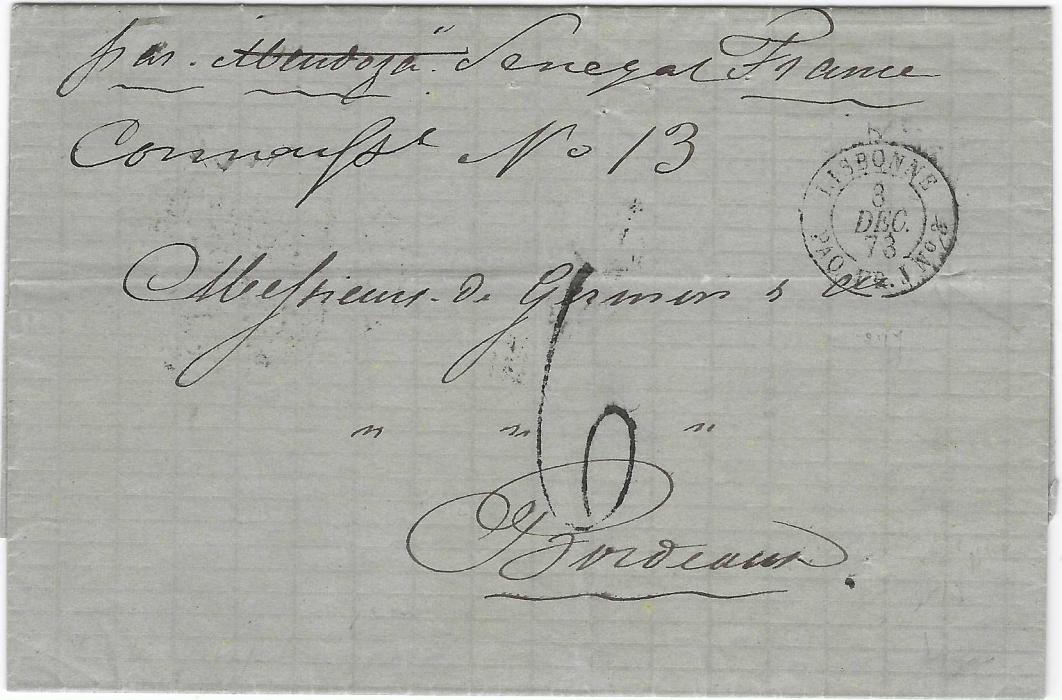 par "Mendoza" Senegal France
Connaiss.t No 13
LISBONNE
3
DEC.
73
PAQ. FR. J No 3
Messieurs de Germon & Co
" " "
6
Bordeaux.